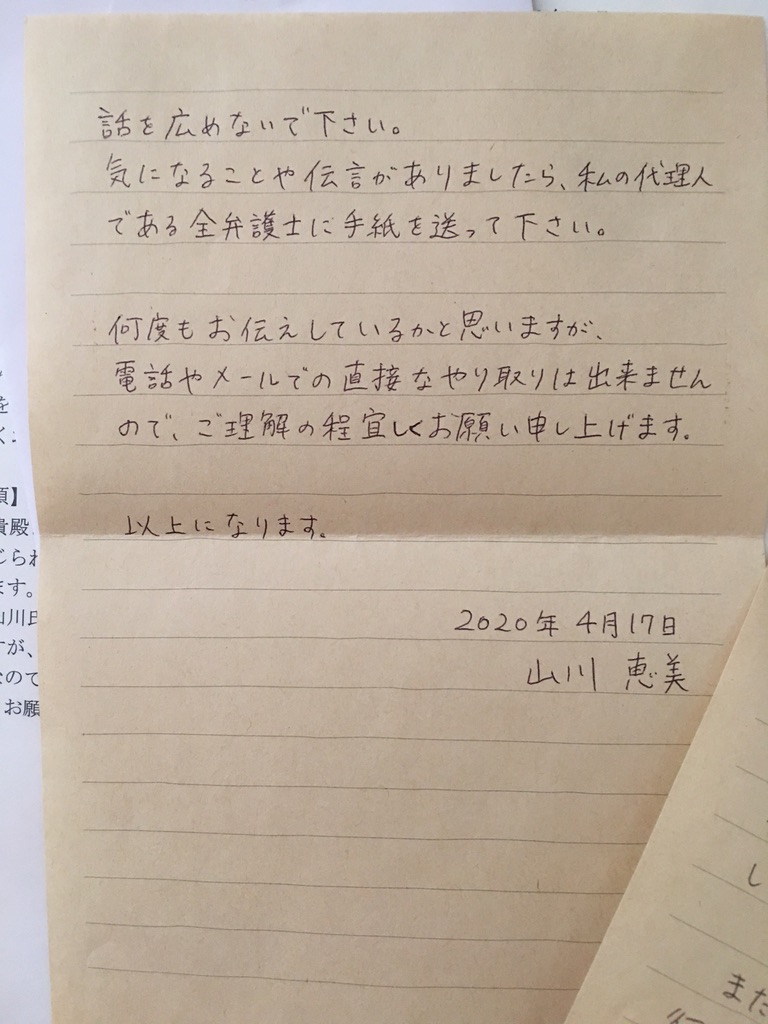 話を広めないで下さい。
気になることや伝言がありましたら、私の代理人
である全弁護士に手紙を送って下さい。
何度もお伝えしているかと思いますが、
電話やメールでの直接なやり取りは出来ません
ので、ご理解の程宜しくお願い申し上げます。
以上になります。
2020年 4月17日
山川 恵美
を
く
項】
貴殿
じられ
ます。
山川氏
すが、
なので
お願
し
また